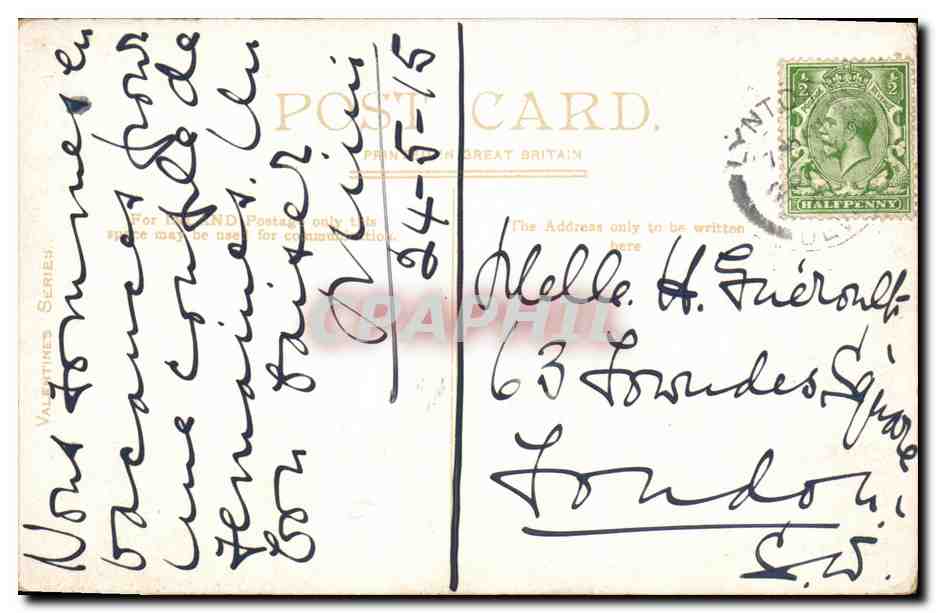 POST CARD.
PRINTED IN GREAT BRITAIN
For INLAND Postage only this
space may be used for communication.
The Address only to be written
here
VALENTINES SERIES.
Nous sommes en
vacances pour
une couple de
semaines. Un
bon baiser
24-5-15
Melle. H. Guéroult
63 Lowndes Square
London.
S.W.
LYNTON
1/2 1/2
HALFPENNY
CPAPHIL